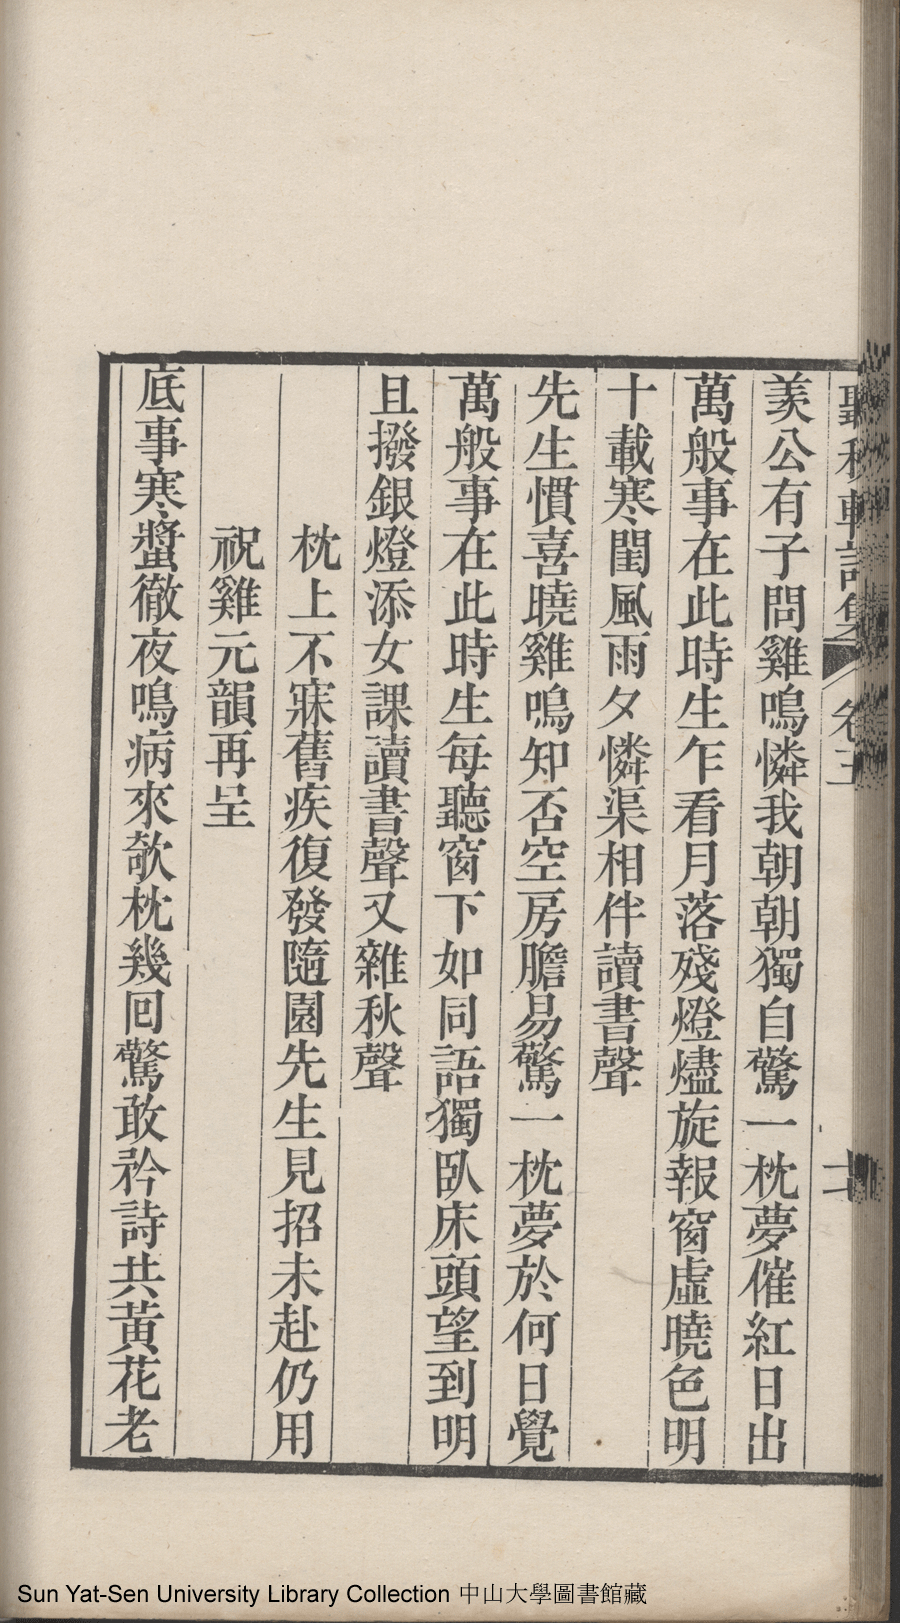 聽秋軒詩集 卷三
羨公有子問雞鳴憐我朝朝獨自驚一枕夢催紅日出
萬般事在此時生乍看月落殘燈燼旋報窗虛曉色明
十載寒閨風雨夕憐渠相伴讀書聲
先生慣喜曉雞鳴知否空房膽易驚一枕夢於何日覺
萬般事在此時生每聽窗下如同語獨臥床頭望到明
且撥銀燈添女課讀書聲又雜秋聲
枕上不寐舊疾復發隨園先生見招未赴仍用
祝雞元韻再呈
底事寒螿徹夜鳴病來欹枕幾回驚敢矜詩共黃花老
Sun Yat-Sen University Library Collection 中山大學圖書館藏